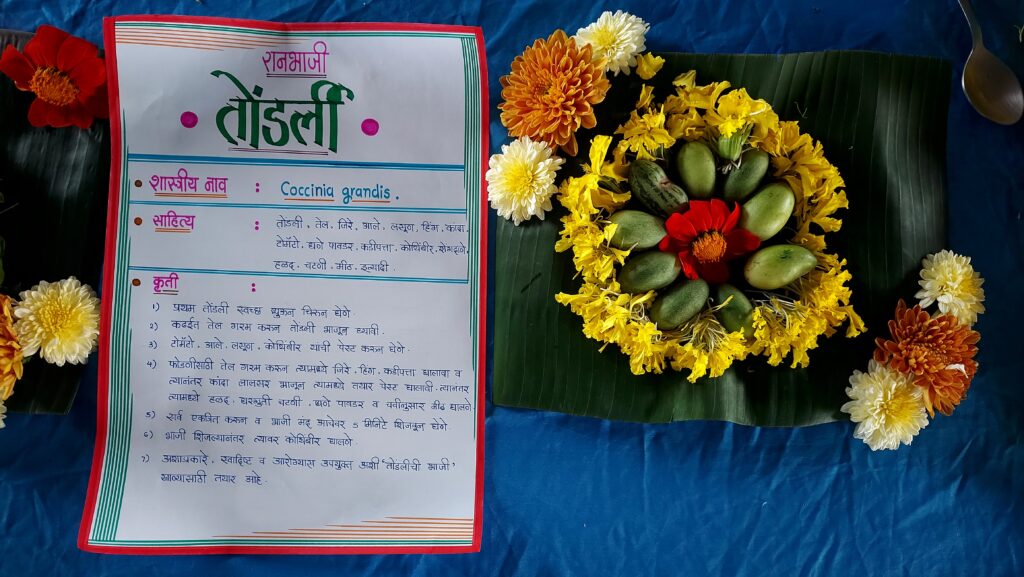 रानभाजी
तोंडली
शास्त्रीय नाव : Coccinia grandis.
साहित्य : तोंडली, तेल, जिरे, आले, लसूण, हिंग, कांदा,
टोमॅटो, धणे पावडर, कढीपत्ता, कोथिंबीर,
हळद, चटणी, मीठ, इत्यादी.
कृती :
1) प्रथम तोंडली स्वच्छ धुवून चिरून घेणे.
2) कढईत तेल गरम करून तोंडली भाजून घ्यावी.
3) टोमॅटो, आले, लसूण, कोथिंबीर यांची पेस्ट करून घेणे.
4) फोडणीसाठी तेल गरम करून त्यामध्ये जिरे, हिंग, कढीपत्ता घालावा व
त्यानंतर कांदा लालसर भाजून त्यामध्ये तयार पेस्ट घालावी. त्यानंतर
त्यामध्ये हळद, घरगुती चटणी, धणे पावडर व चवीनुसार मीठ घालणे.
5) सर्व एकत्रित करून व भाजी मंद आचेवर 5 मिनिटे शिजवून घेणे.
6) भाजी शिजल्यानंतर त्यावर कोथिंबीर घालणे.
7) अशाप्रकारे, स्वादिष्ट व आरोग्यास उपयुक्त अशी 'तोंडलीची भाजी'
खाण्यासाठी तयार आहे.